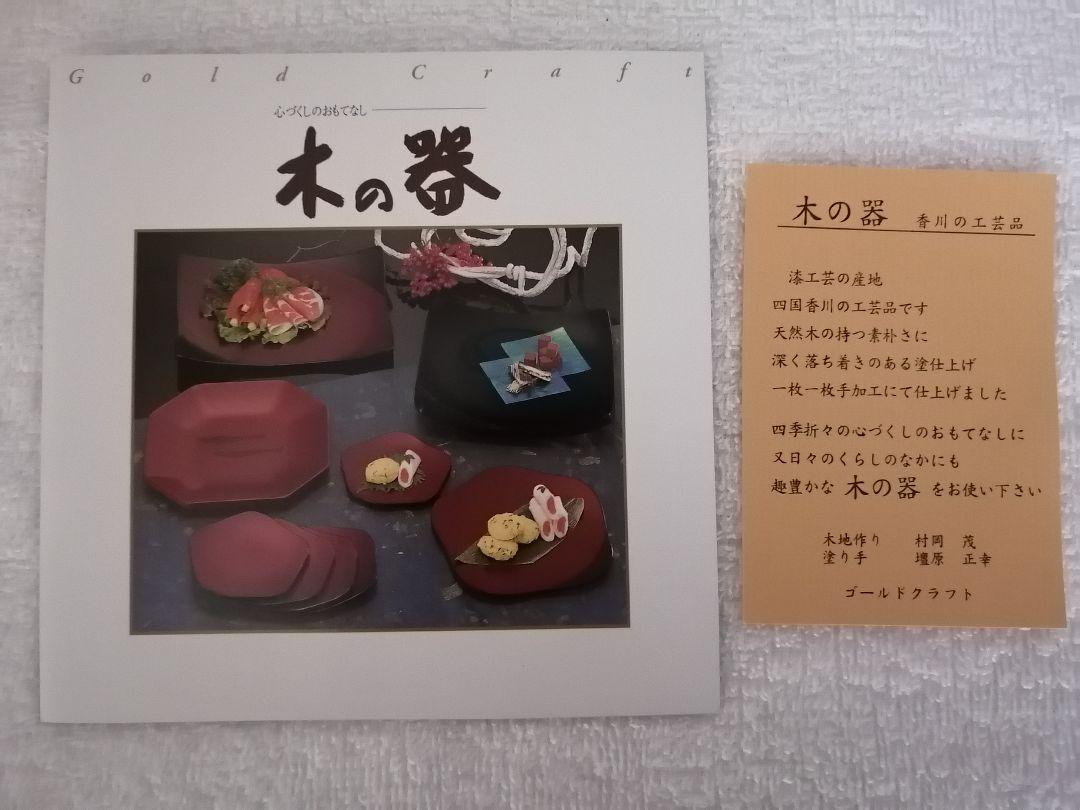 Gold Craft
心づくしのおもてなし
木の器
木の器 香川の工芸品
漆工芸の産地
四国香川の工芸品です
天然木の持つ素朴さに
深く落ち着きのある塗仕上げ
一枚一枚手加工にて仕上げました
四季折々の心づくしのおもてなしに
又日々のくらしのなかにも
趣豊かな 木の器 をお使い下さい
木地作り 村岡 茂
塗り手 壇原 正幸
ゴールドクラフト